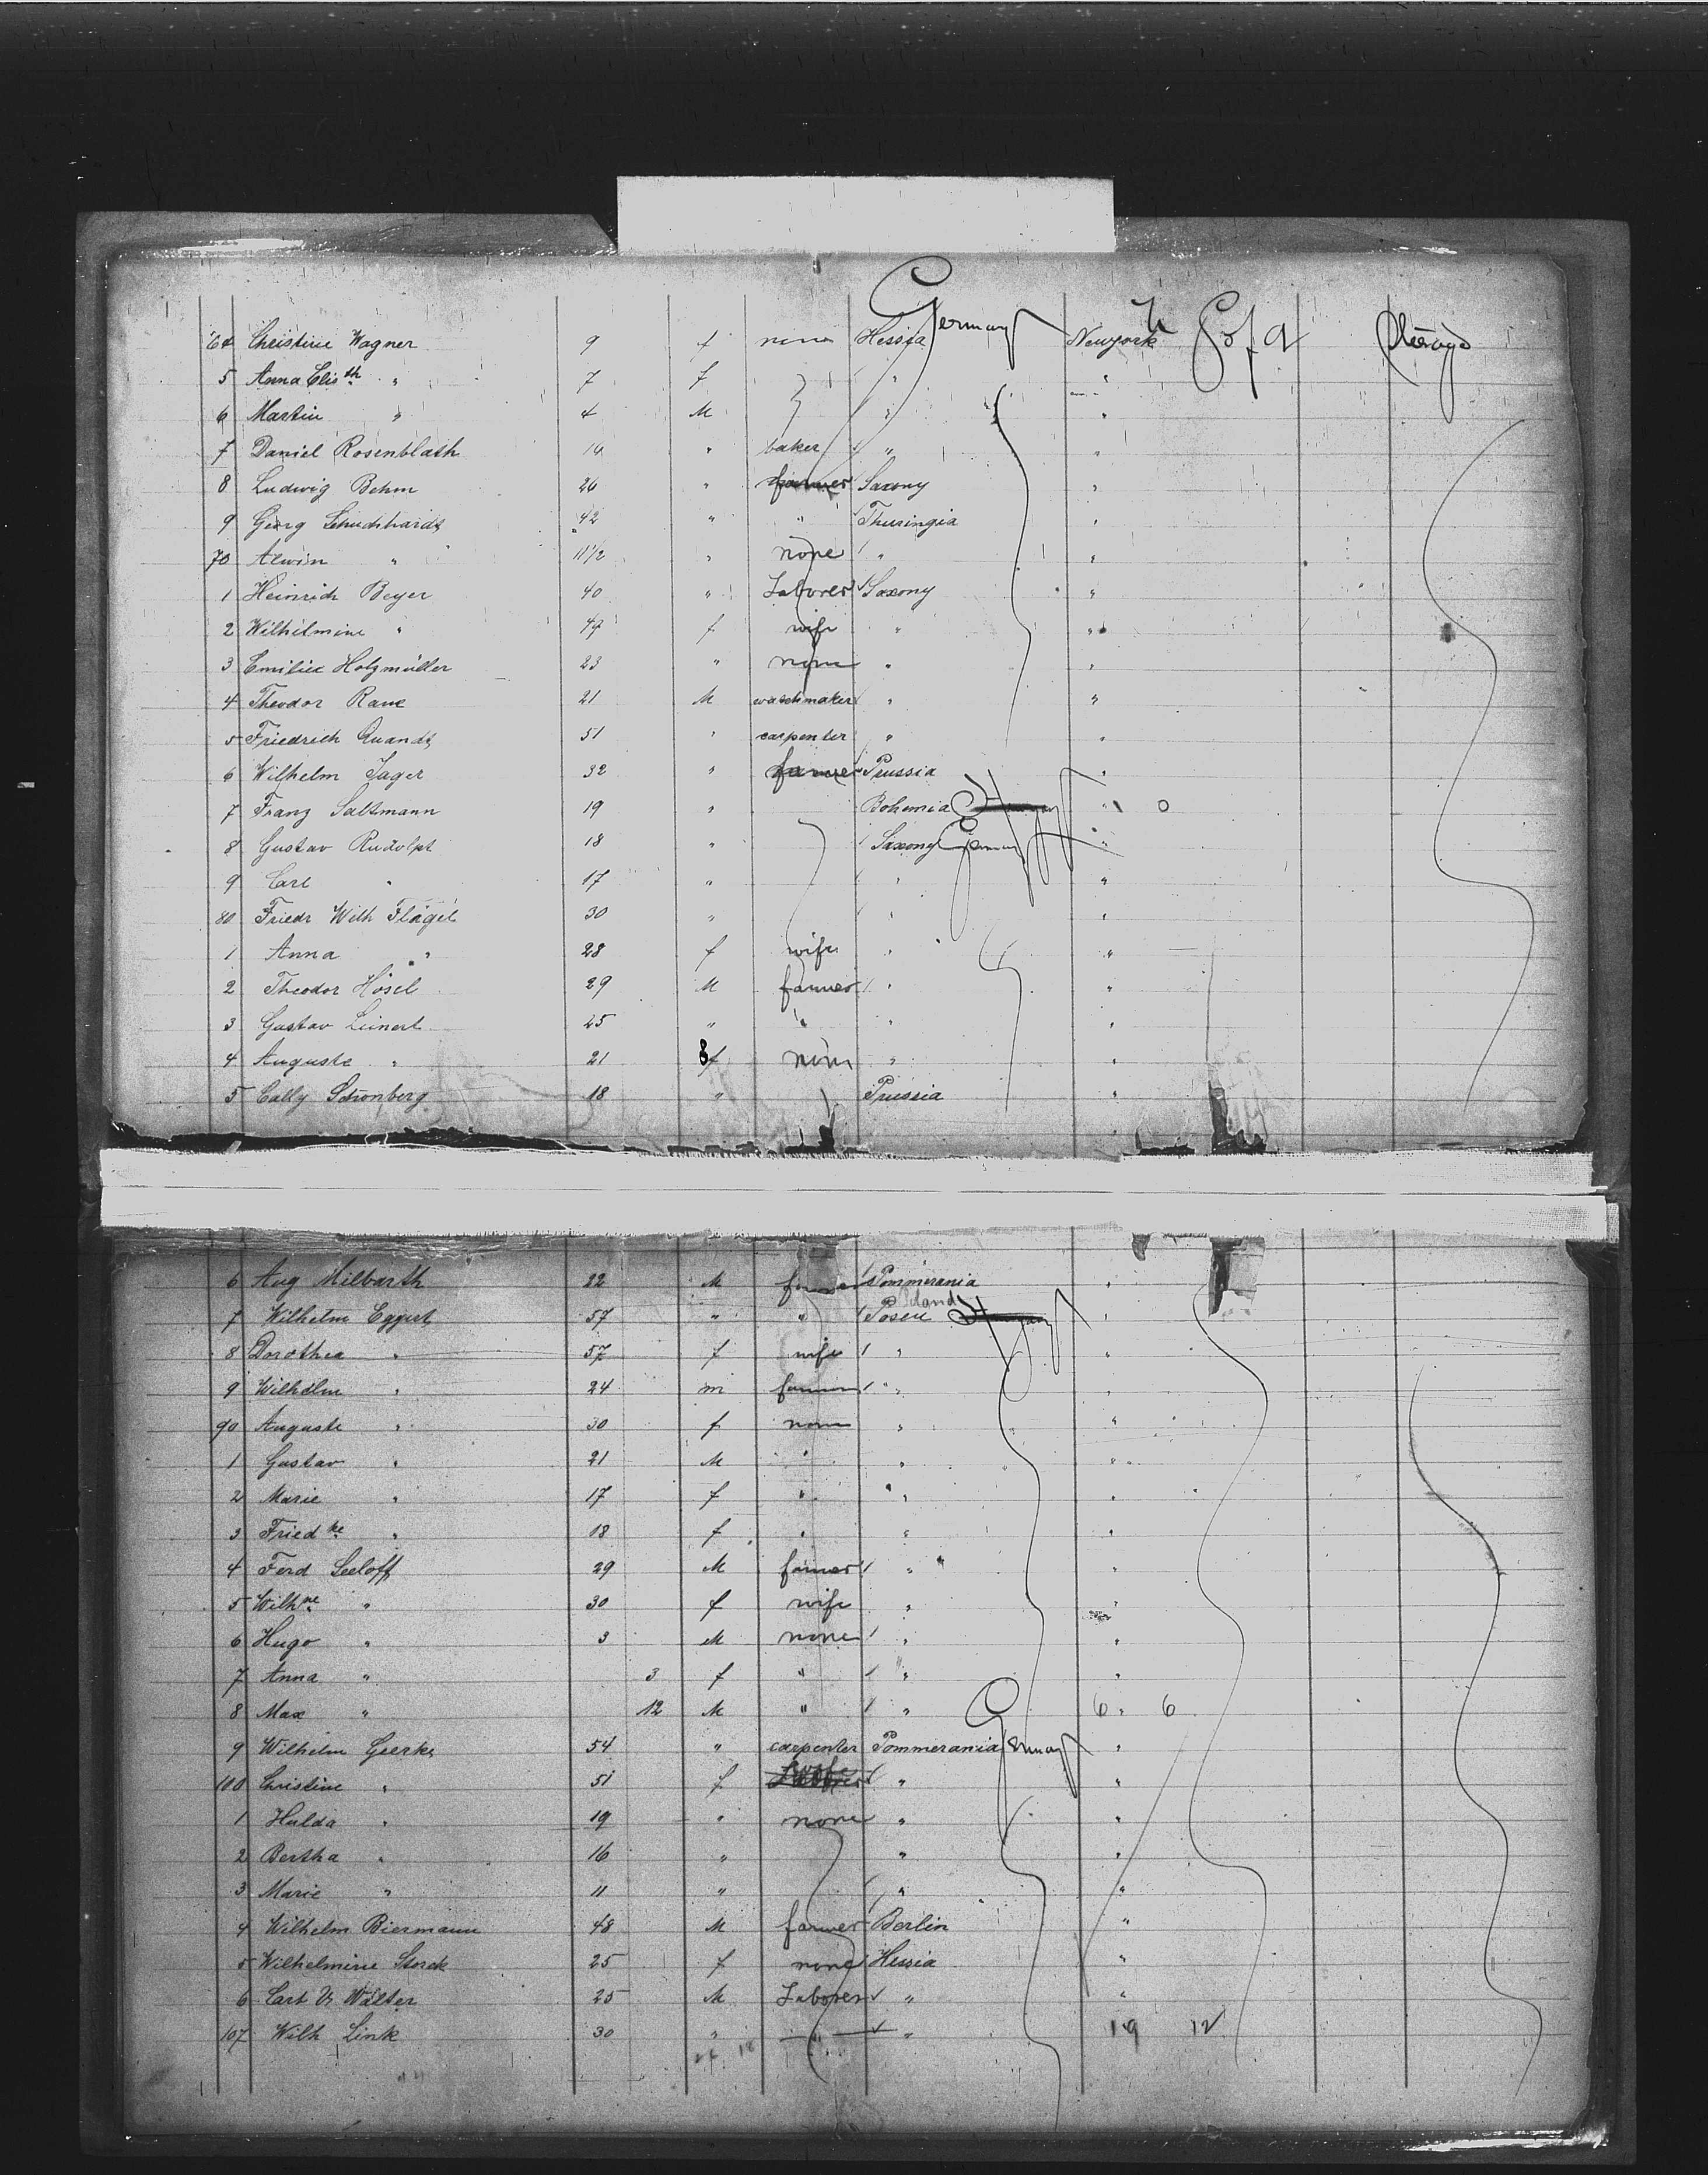 Germany
64 Christine Wagner 9 f none Hessia Newyork
5 Anna Elisth " 7 f " "
6 Martin " 4 M " "
7 Daniel Rosenblath 14 " baker " "
8 Ludwig Behm 26 " farmer Saxony "
9 Georg Schuchhardt 42 " " Thuringia "
70 Alwin " 11 1/2 " none " "
1 Heinrich Beyer 40 " Laborer Saxony "
2 Wilhelmine " 49 f wife " "
3 Emilie Holzmüller 23 " none " "
4 Theodor Rane 21 M watchmaker " "
5 Friedrich Quandt 51 " carpenter " "
6 Wilhelm Jager 32 " farmer Prussia "
7 Franz Saltzmann 19 " Bohemia " 0
8 Gustav Rudolph 18 " Saxony Germany "
9 Carl " 17 " " "
80 Friedr Wilh Flägel 30 " " "
1 Anna " 28 f wife " "
2 Theodor Hösel 29 M farmer " "
3 Gustav Leinert 25 " " " "
4 Auguste " 21 f none " "
5 Cally Schönberg 18 " Prussia "
6 Aug Milbarth 22 M farmer Pommerania "
7 Wilhelm Eggert 57 " " Posen "
8 Dorothea " 57 f wife " "
9 Wilhelm " 24 m farmer " "
90 Auguste " 30 f none " "
1 Gustav " 21 M " " "
2 Marie " 17 f " " "
3 Friedke " 18 f " " "
4 Ferd Seeloff 29 M farmer " "
5 Wilhne " 30 f wife " "
6 Hugo " 3 M none " "
7 Anna " 3 f " " "
8 Max " 12 M " " 6 " 6
9 Wilhelm Geerke 54 " carpenter Pommerania Germany "
100 Christine " 51 f wife " "
1 Hulda " 19 " none " "
2 Bertha " 16 " " "
3 Marie " 11 " " "
4 Wilhelm Biermann 48 M farmer Berlin "
5 Wilhelmine Storck 25 f none Hessia "
6 Carl Walter 25 M Laborer " "
107 Wilh Link 30 " " " 19 12